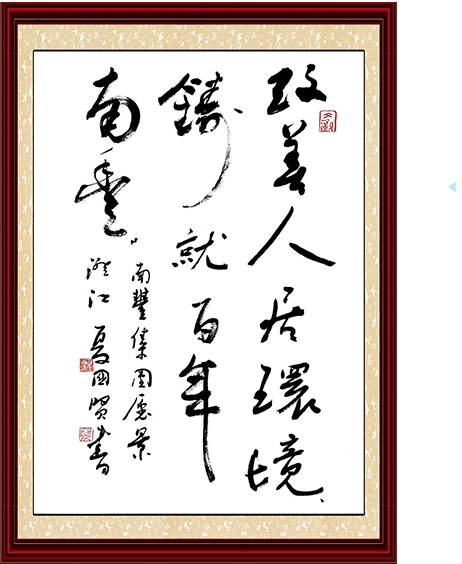 改善人居環境
鑄就百年
南豐
南豐集團愿景
澄江 夏國賢書